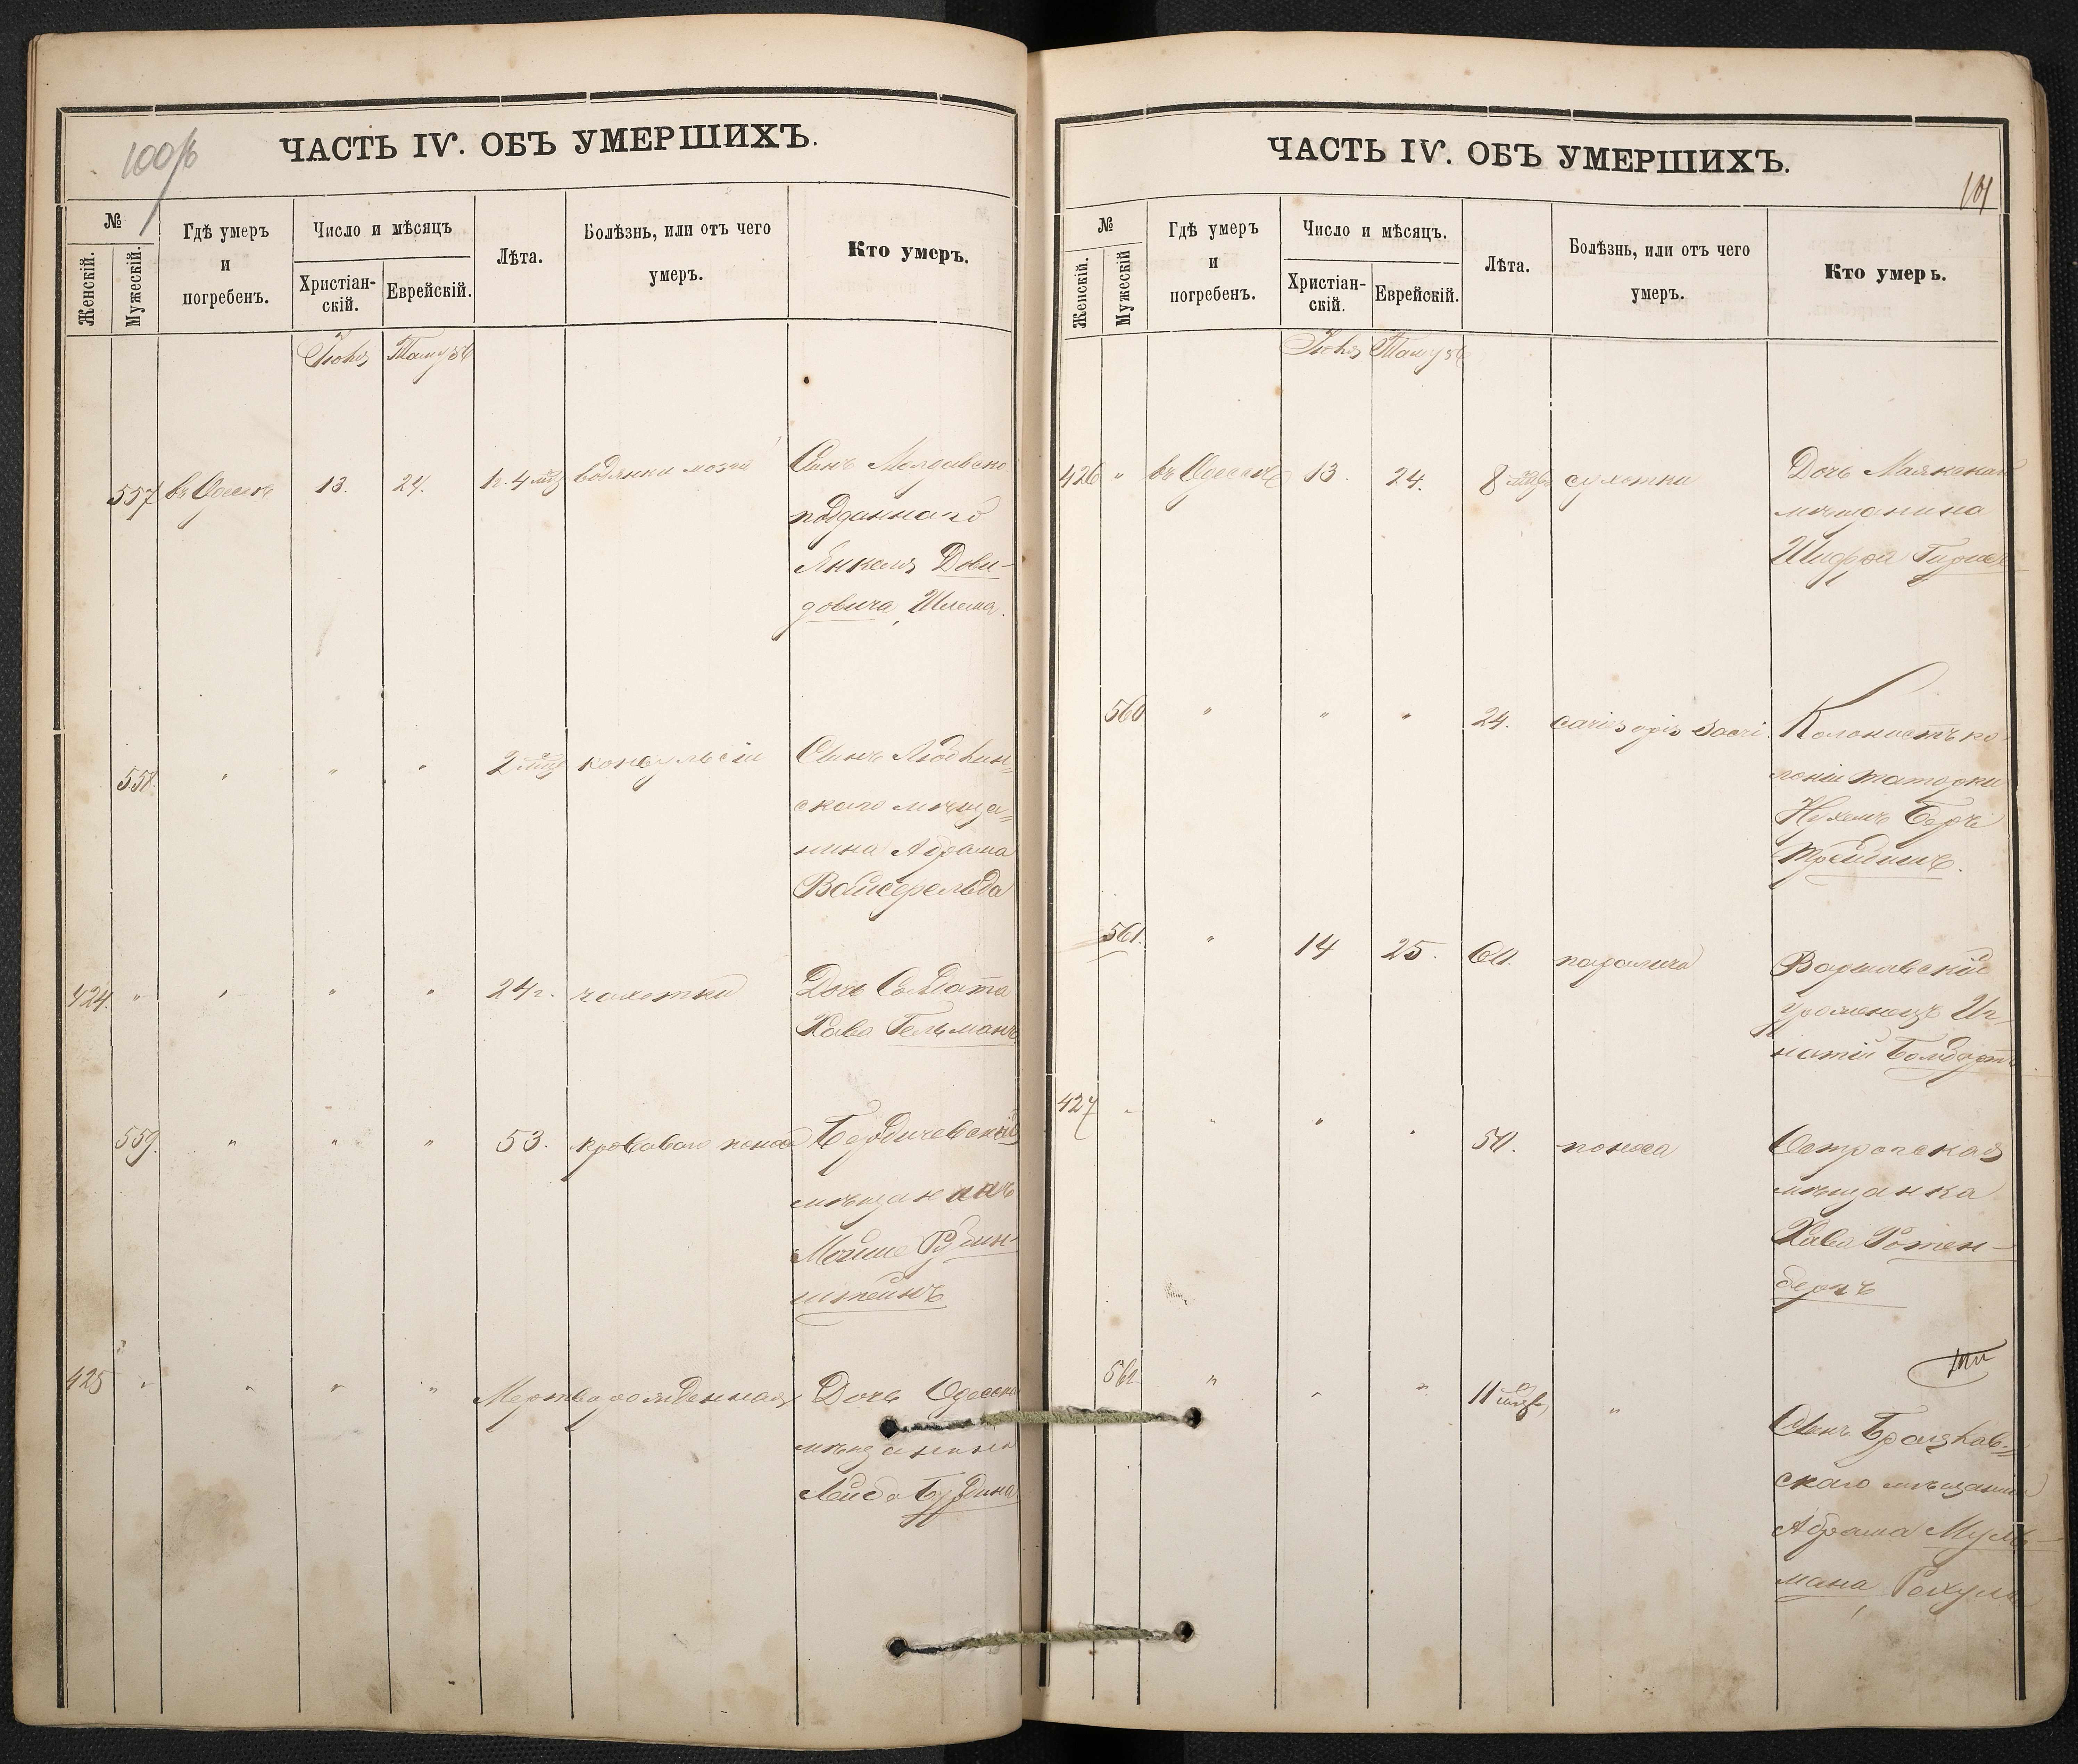 100/б
ЧАСТЬ IV. ОБЪ УМЕРШИХЪ.
№
Женскій.
Мужескій.
Гдѣ умеръ
и
погребенъ.
Число и мѣсяцъ
Христіан-
скій.
Еврейскій.
Лѣта.
Болѣзнь, или отъ чего
умеръ.
Кто умеръ.
Іюля Тамузъ
557 въ Одессѣ 13. 24. 1 г. 4 мѣс водянки мозга Сынъ Молдавско
подданнаго
Янкеля Дови-
довича, Шлема.
558. " " " 2 мѣс конвульсіи Сынъ
скаго мѣща=
нина Абрама
Вайсфельда
424. " " " " 24 г. чахотки Дочь Солдата
Хава Гельманъ
559. " " " 53. кроваваго поноса Бердичевскій
мѣщанинъ
Мойше Рубин-
штейнъ
425 " " " " Мертворожденная Дочь Одесска
мѣщанина
Лейба Бурдина
ЧАСТЬ IV. ОБЪ УМЕРШИХЪ.
101
№
Женскій.
Мужескій
Гдѣ умеръ
и
погребенъ.
Число и мѣсяцъ.
Христіан-
скій.
Еврейскій.
Лѣта.
Болѣзнь, или отъ чего
умеръ.
Кто умеръ.
Іюля Тамузъ
426 " въ Одессѣ 13. 24. 8 мѣс сухотки Дочь Маякскаго
мѣщанина
560 " " " 24. caries ossis sacri. Колонистъ ко-
лоніи
Нухемъ Беръ
561. " 14 25. 60. паралича Варшавскій
уроженецъ Иг-
натій
427 " " " " 50. поноса Острогская
мѣщанка
Хава Ротен-
бергъ
562 " " " 11 мѣс, " Сынъ Брацлав=
скаго мѣщанина
Абрама Муль-
мана,